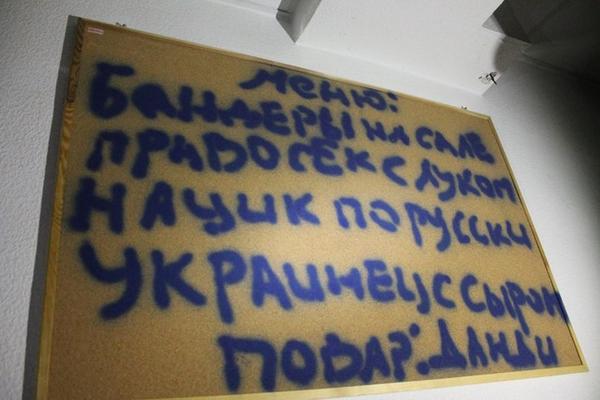 меню:
БАНДЕРЫ НА САЛЕ
ПРАВОСЕК С ЛУКОМ
НАЦИК ПО РУССКИ
УКРАИНЕЦ С СЫРОМ
ПОВАР: ДАНДИ